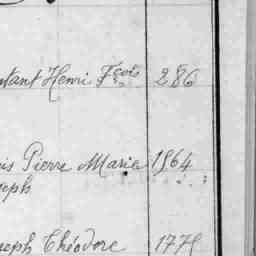 Henri Fçois 286
Pierre Marie 1964
seph
seph Théodore 177